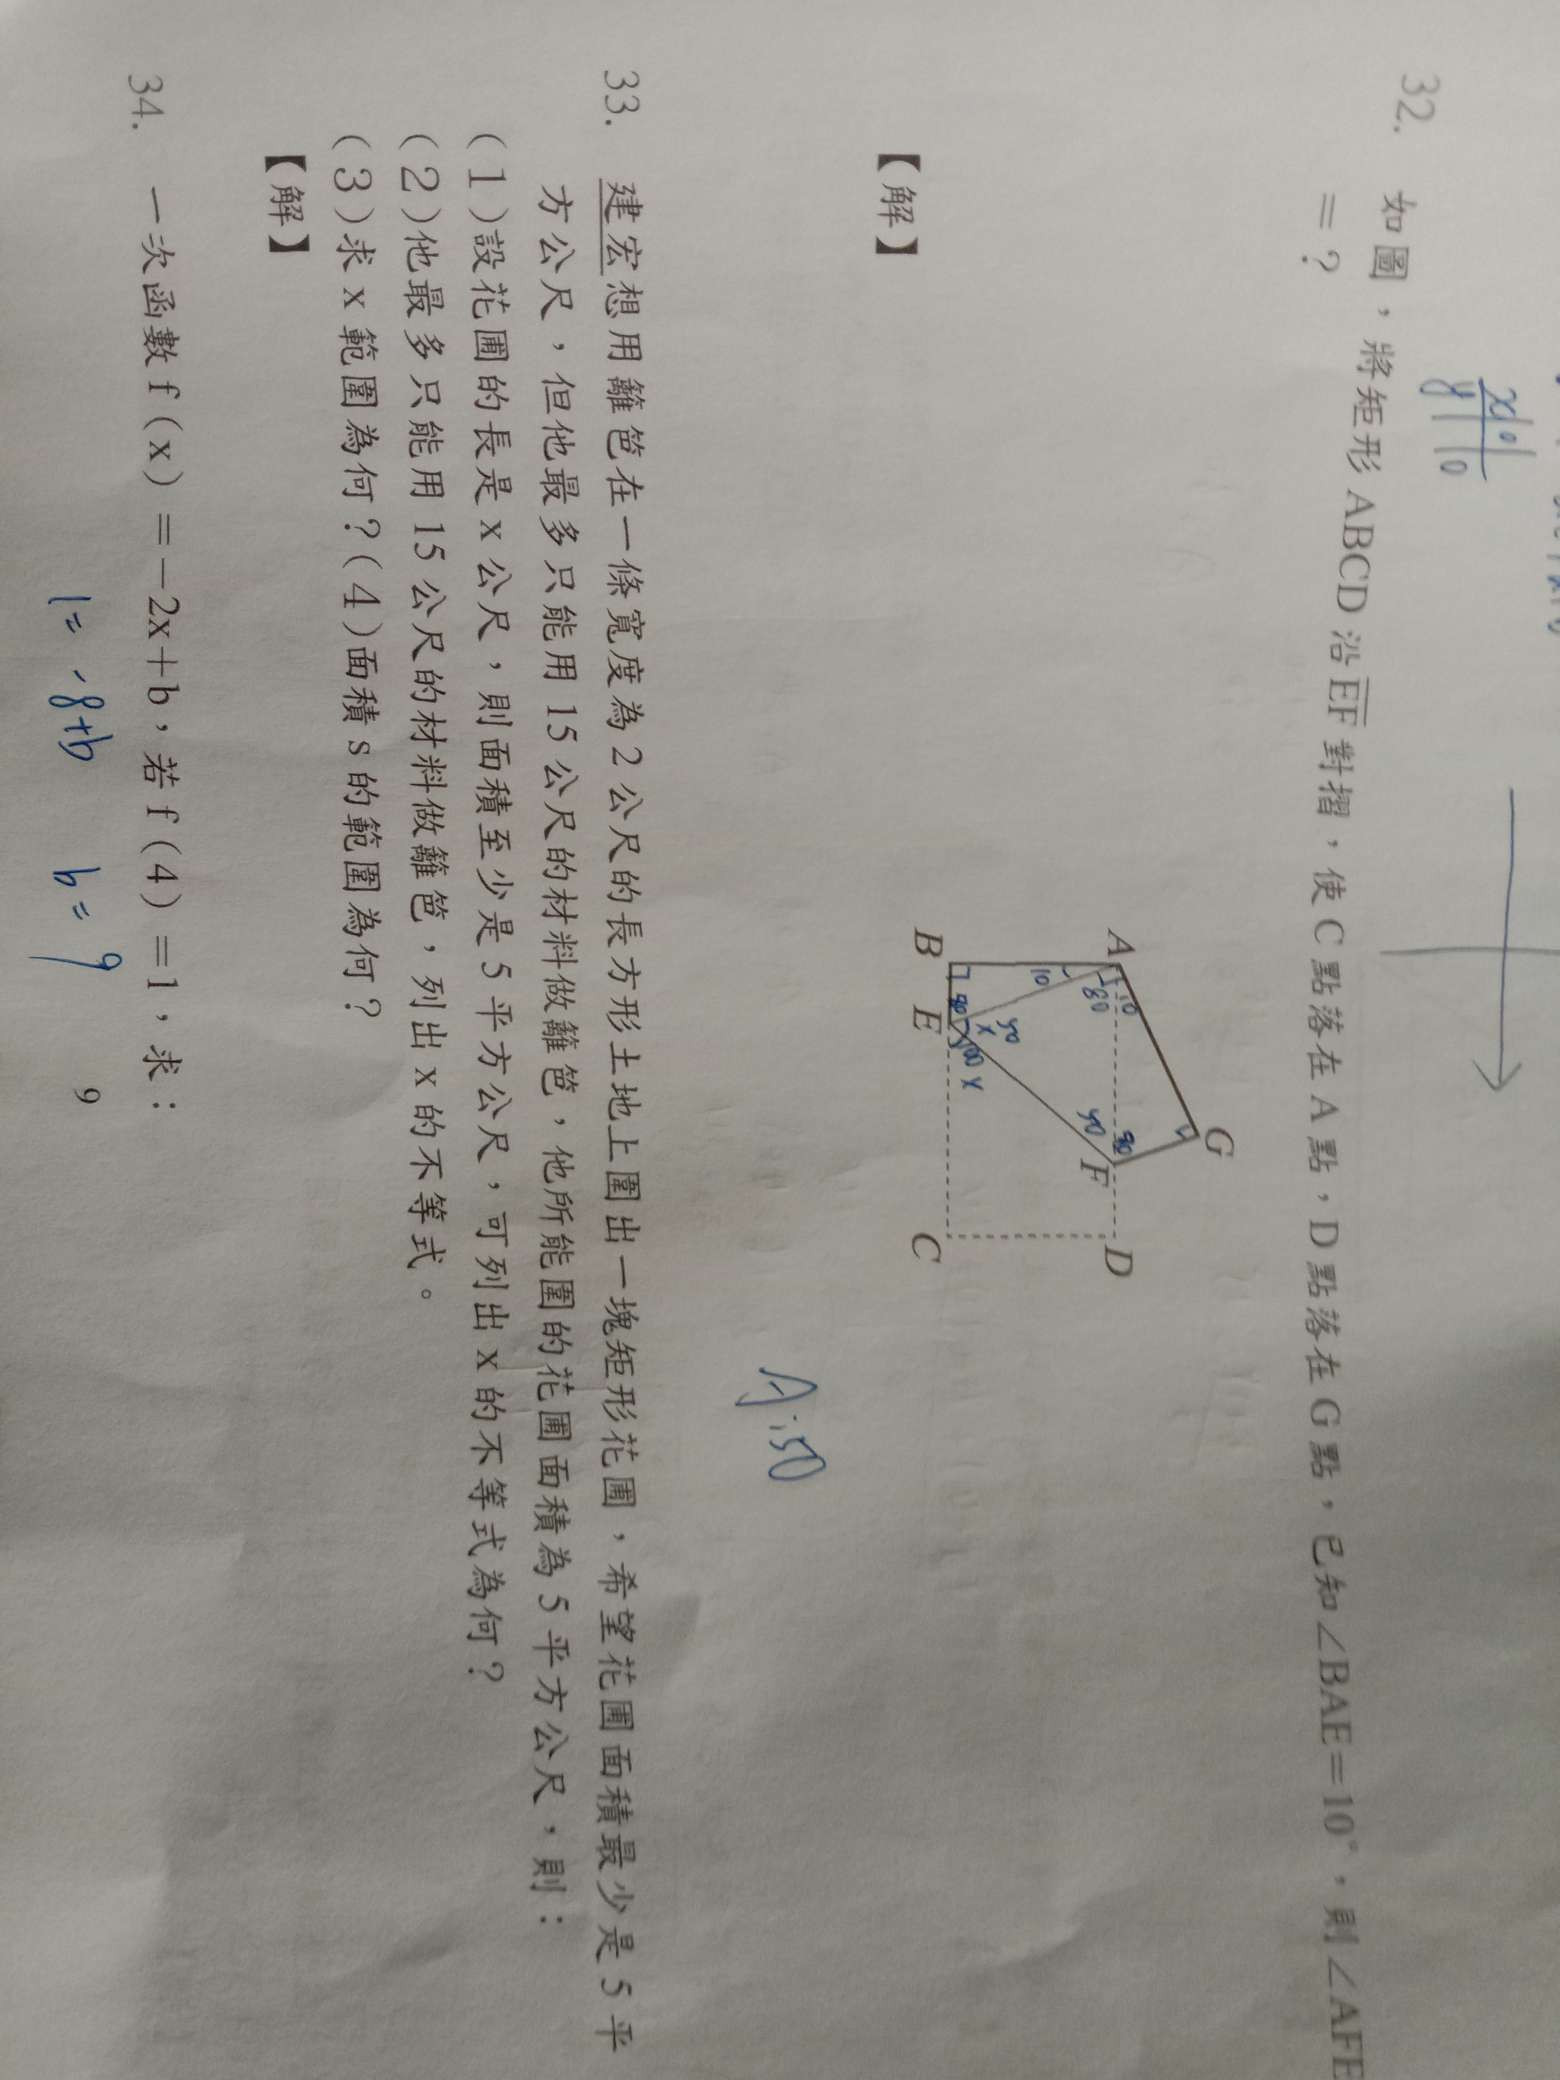 x 0 1
y 1 0
32. 如圖，將矩形 ABCD 沿 EF 對摺，使 C 點落在 A 點，D 點落在 G 點，已知∠BAE＝10°，則∠AFE
＝？
A G
B E F
C D
10 80 10
80 x 50
100 x
50 80
【解】
A:50
33. 建宏想用籬笆在一條寬度為 2 公尺的長方形土地上圍出一塊矩形花圃，希望花圃面積最少是 5 平
方公尺，但他最多只能用 15 公尺的材料做籬笆，他所能圍的花圃面積為 5 平方公尺，則：
(1)設花圃的長是 x 公尺，則面積至少是 5 平方公尺，可列出 x 的不等式為何？
(2)他最多只能用 15 公尺的材料做籬笆，列出 x 的不等式。
(3)求 x 範圍為何？(4)面積 s 的範圍為何？
【解】
34. 一次函數 f(x)＝－2x＋b，若 f(4)＝1，求：
1=-8+b b=9
9